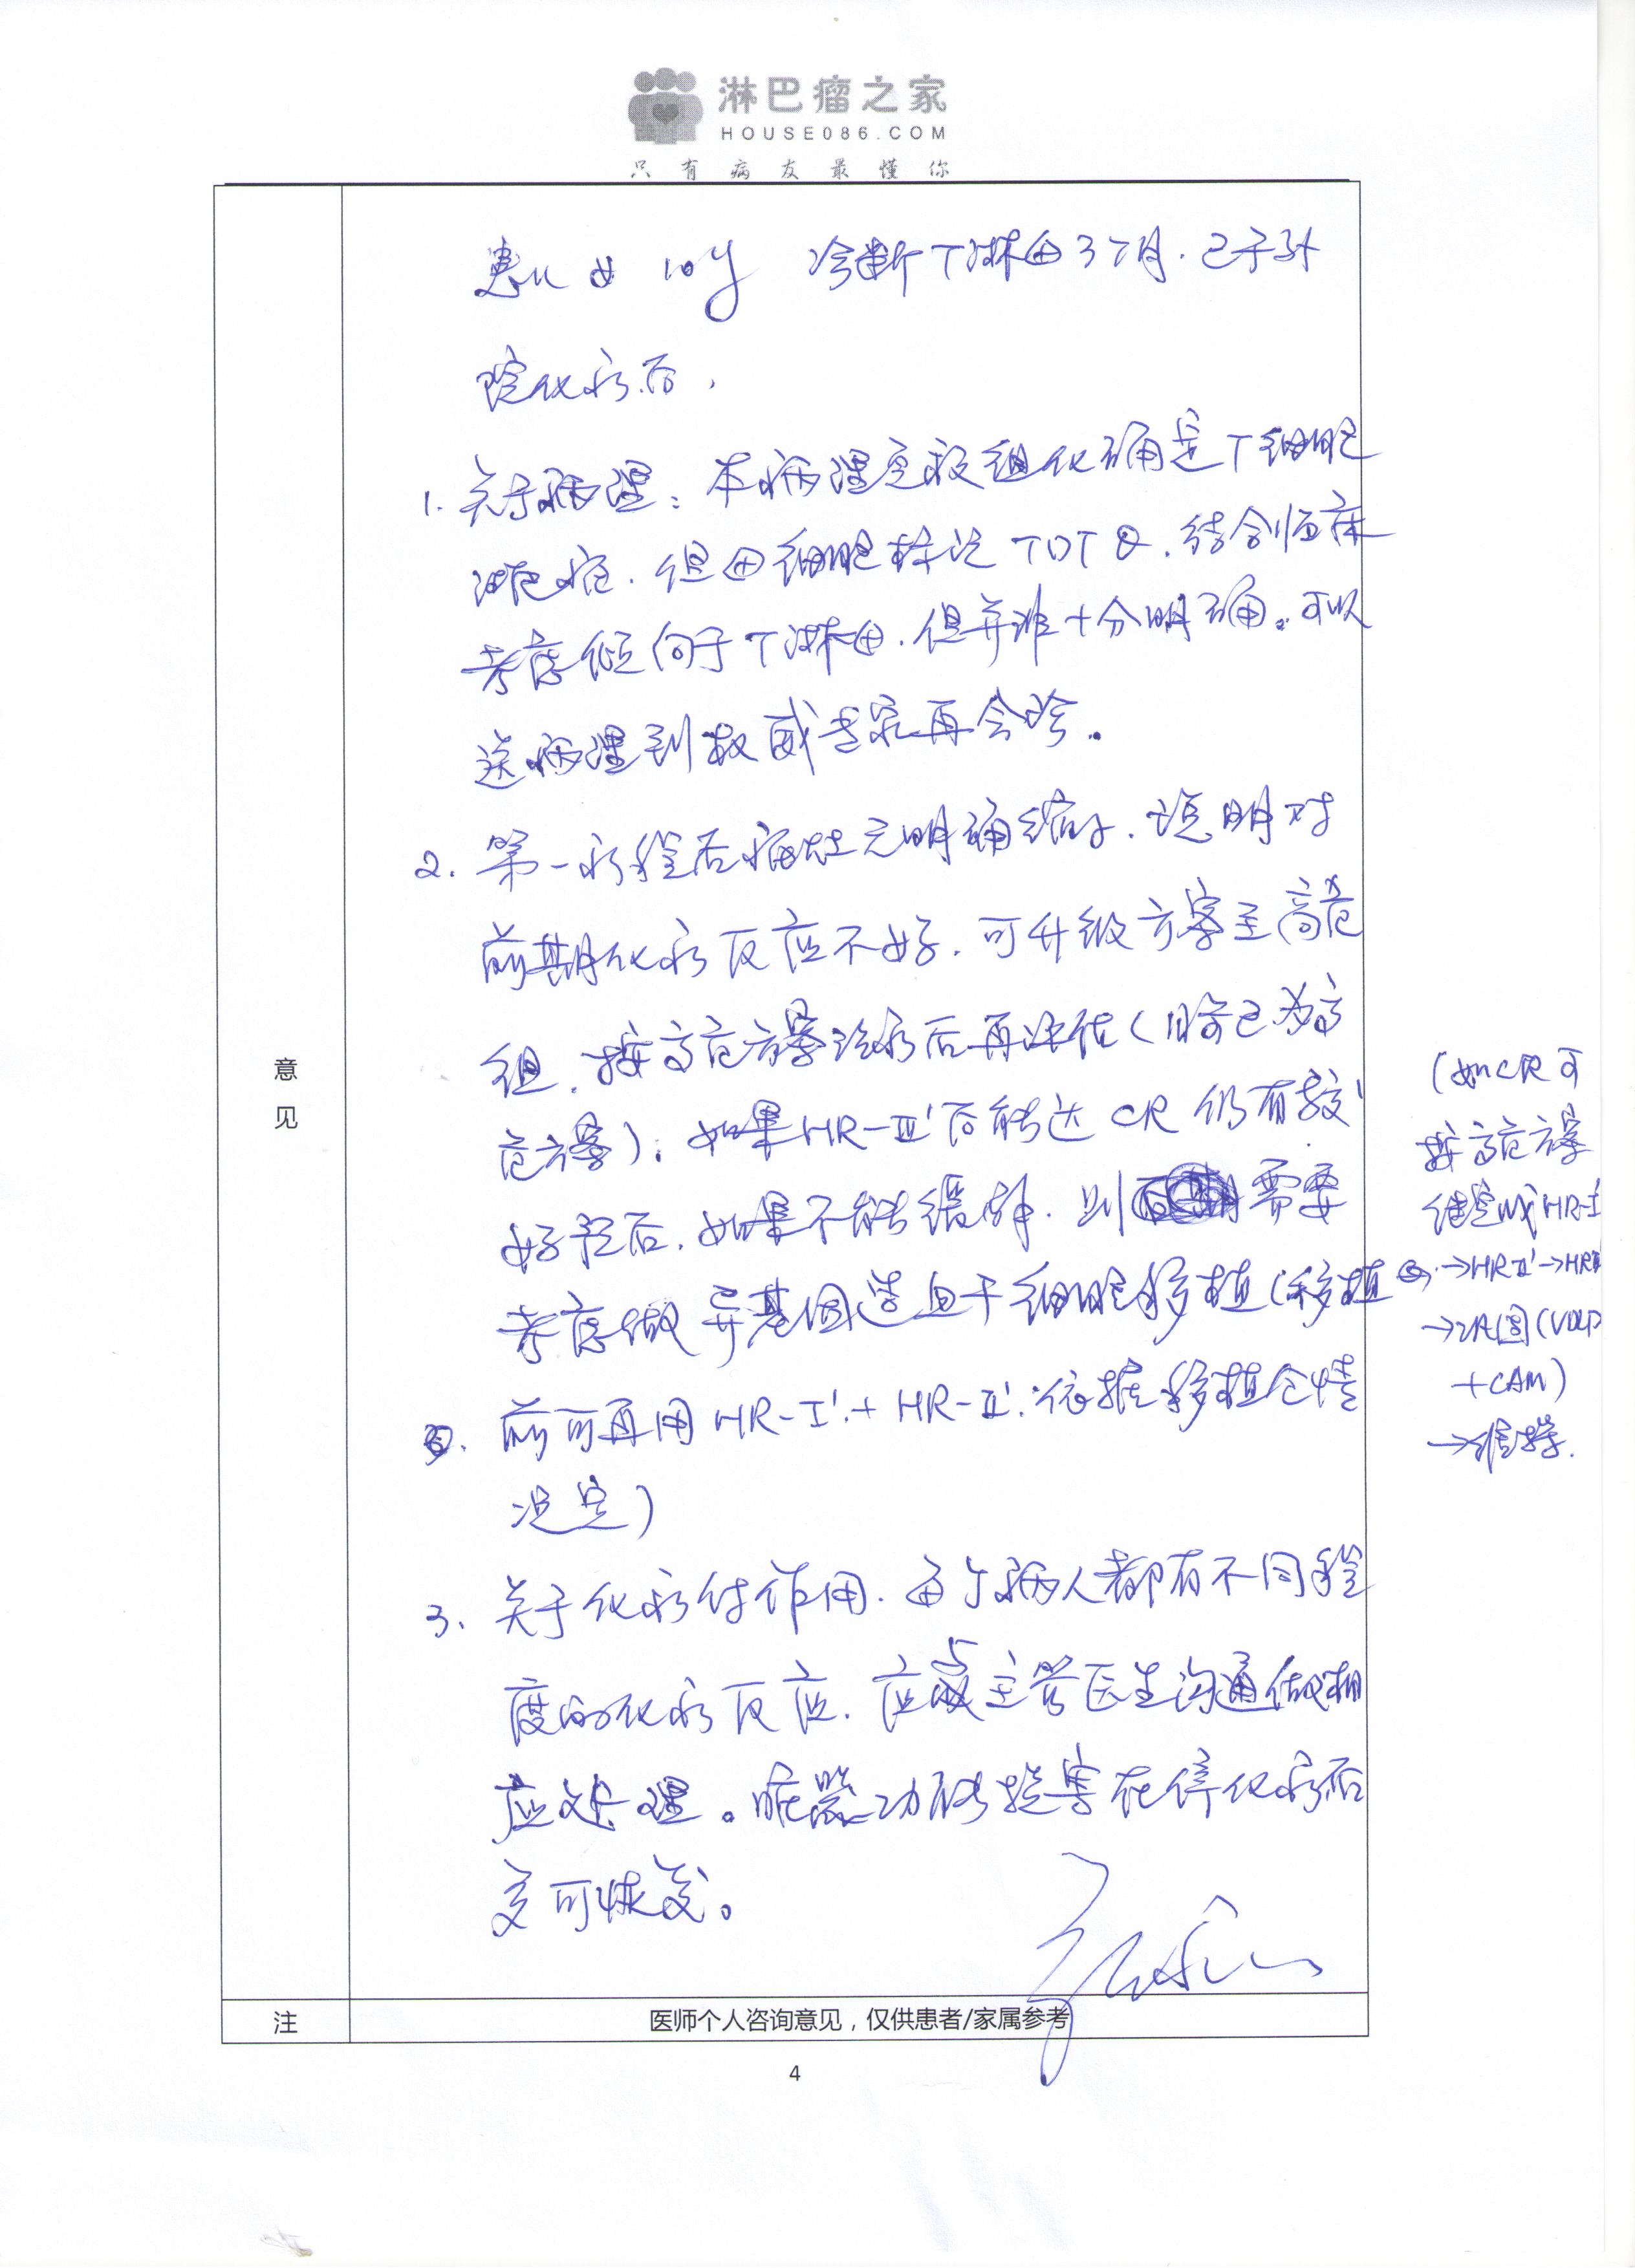 淋巴瘤之家
HOUSE086.COM
只有病友最懂你
意见
患儿 女 10y 诊断T淋母3个月.已于外
院化疗后,
1. 关于病理:本病理免疫组化确是T细胞
淋巴瘤.但母细胞标记TDT⊖.结合临床
考虑倾向于T淋母.但并非十分明确。可以
送病理到权威专家再会诊。
2. 第一疗程后病灶无明确缩小.说明对
前期化疗反应不好.可升级方案至高危
组.按高危方案治疗后再评估(目前已为高
危方案).如果HR-Ⅲ'后能达CR仍有较
好预后.如果不能缓解.则需要
考虑做异基因造血干细胞移植(移植
前可再用HR-Ⅰ'+HR-Ⅱ'.依据移植仓情
况定)
(如CR可
按高危方案
继完成HR-Ⅰ'
→HRⅡ'→HRⅢ
→再(VDLD
+CAM)
→维持.
3. 关于化疗付作用.每个病人都有不同程
度的化疗反应.应与主管医生沟通做相
应处理。脏器功能损害在停化疗后
多可恢复。
注
医师个人咨询意见,仅供患者/家属参考
4